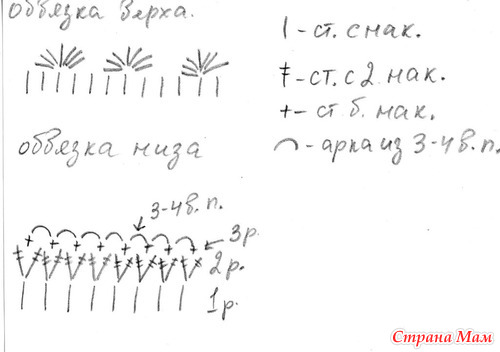 обвязка верха.
| - ст. с нак.
ŧ - ст. с 2 нак.
+ - ст б. нак.
⌒ - арка из 3-4 в. п.
обвязка низа
3-4 в. п.
3 р.
2 р.
1 р.
Страна Мам